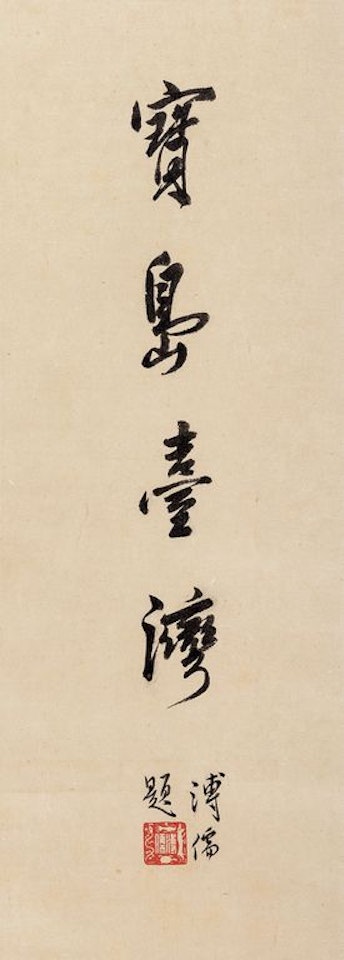 寶島臺灣
溥儒
題